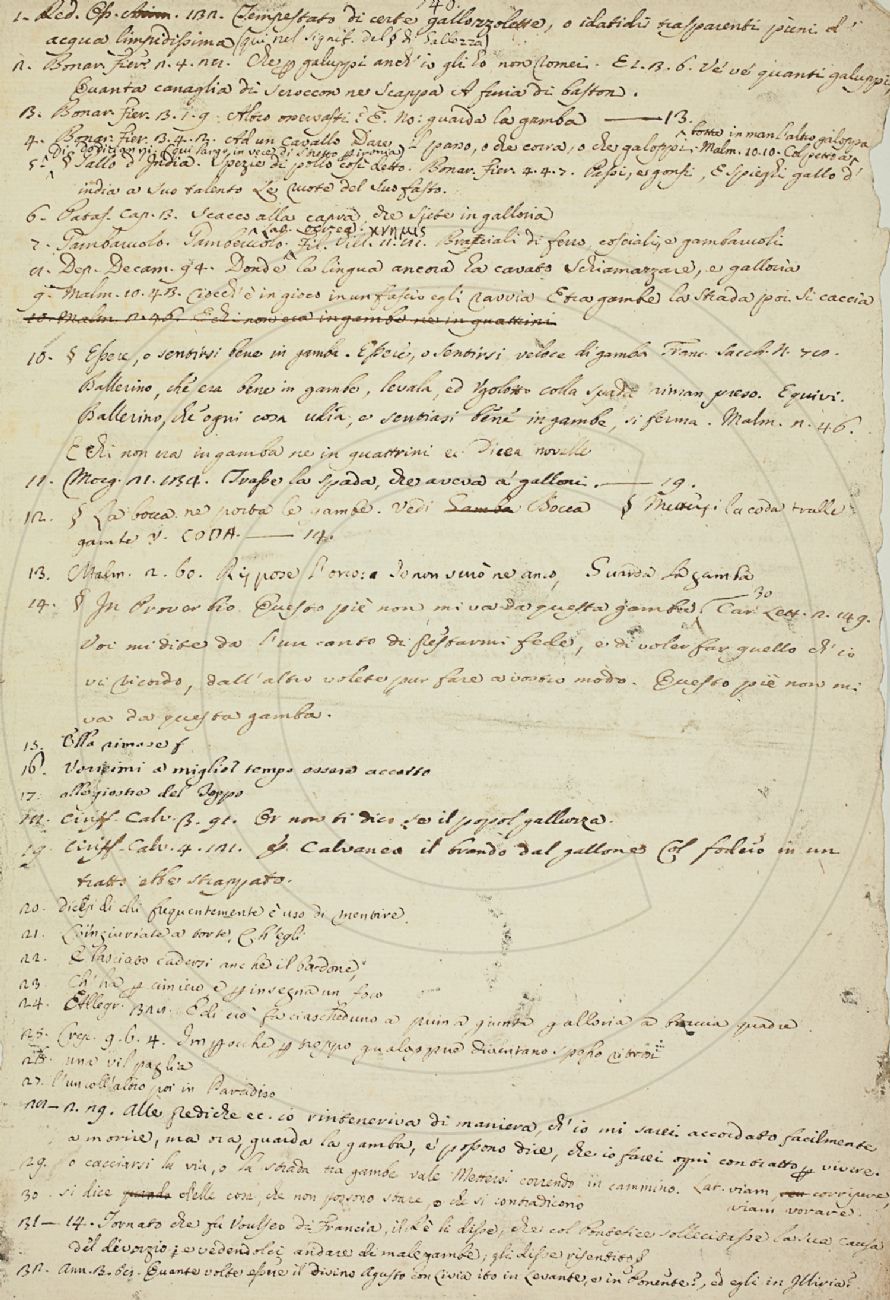 140.
1. Red. Esp. Atim. 132. Tempestato di certe gallozzolette, o idatidi trasparenti pieni d'
acqua limpidissima (qui nel signif. del § di Gallozza)
2. Bonar. Fier. 2. 4. 21. Che p galuppi anch'io gli ho non tomei. E 1. 3. 6. Ve' ve' quanti galuppi,
Quanta canaglia di scrocconi ne scappa A furia di baston.
3. Bonar. Fier. 3. 1. 9. Altro osservasti? E. No: guarda la gamba —— 13.
botta in man l'altro galoppa
4. Bonar. Fier. 3. 4. 2. Ad un cavallo Dare il pano, o che corra, o che galoppi. Malm. 10. 10. Col pétto a
5. § Gallo d'India. Spezie di pollo così detto. Bonar. Fier. 4. 4. 7. Passi, e gonfi, E spieghi gallo d'
india a suo talento Le ruote del suo fasto.
6. Pataf. cap. 3. Scacco alla capra, che siete in galloria
Lat. ocrea. κνημίς
7. Gambaruolo. Gamberuolo. Fil. Vill. 11. 81. Bracciali di ferro, cosciali, e gambaruoli
8. Dep. Decam. 94. Donde la lingua ancora ha cavato Schiamazzare, e galloria
9. Malm. 10. 43. Ciocch'è in gioco in un fascio egli ravvia E tra gambe la strada poi si caccia
10. Malm. 2. 46. E chi non era in gambe ne in quattrini
10. § Essere, o sentirsi bene in gambe. Essere, o sentirsi veloce di gamba Franc. Sacch. N. 70.
Ballerino, che era bene in gambe, levala, ed Ugolotto colla spada riman preso. E quivi.
Ballerino, ch'ogni cosa udia, e sentiasi bene in gambe, si ferma. Malm. 2. 46.
E chi non era in gamba ne in quattrini ec. Dicea novelle
11. Morg. 21. 134. Trasse la spada, che aveva a' galloni. —— 19.
12. § La bocca ne porta le gambe. Vedi Gamba Bocca § Mettersi la coda tralle
gambe V. CODA. —— 14.
13. Malm. 2. 60. Rispose l'orco: a Io non verrò ne anco, Guarda la gamba
14. § In Proverbio. Questo piè non mi va da questa gamba 30 Car. Lett. 2. 149.
Voi mi dite da l'un canto di prestarmi fede, e di voler far quello ch'io
vi ricordo, dall'altro volete pur fare a vostro modo. Questo piè non mi
va da questa gamba.
15. Ella rimase
16. Vorreimi a miglior tempo essere accorto
17. alle giostre del Toppo
18. Ciriff. Calv. 3. 91. Or non ti dico se il popol galluzza.
19. Ciriff. Calv. 4. 121. Calvaneo il brando dal gallone Col fodero in un
tratto ebbe strappato.
20. Dicesi di chi frequentemente è uso di mentire.
21. L'ingiuriate a torto, Ch'egli
22. E lasciato cadersi anche il bordone,
23. Ch'ha p cimiero e p insegna un foco
24. Allegr. 328. E di ciò fa ciascheduno a prima giunta galloria a braccia quadre
25. Cresc. 9. 6. 4. Impocchè p troppo galoppare diventano spesso ritrosi
26. una vil paglia
27. l'un coll'altro poi in Paradiso
28— 2. 29. Alle prediche ec. io rinteneriva di maniera, ch'io mi sarei accordato facilmente
a morire, ma ora, guarda la gamba, e possono dire, che io farei ogni contratto p vivere.
29. o cacciarsi la via, o la strada tra gambe vale Mettersi correndo in cammino. Lat. viam corripere,
viam vorare.
30. si dice quando delle cose, che non possono stare, o che si contradicono
31— 14. Tornato che fu Voulseo di Francia, il Rè li disse, che col Pontefice sollecitasse la sua causa
del divorzio; e vedendolci andare di male gambe, gli disse risentito
32. Ann. 3. 61. Quante volte essere il divino Agusto con Livia ito in Levante, e in Ponente?, ed egli in Illiria?